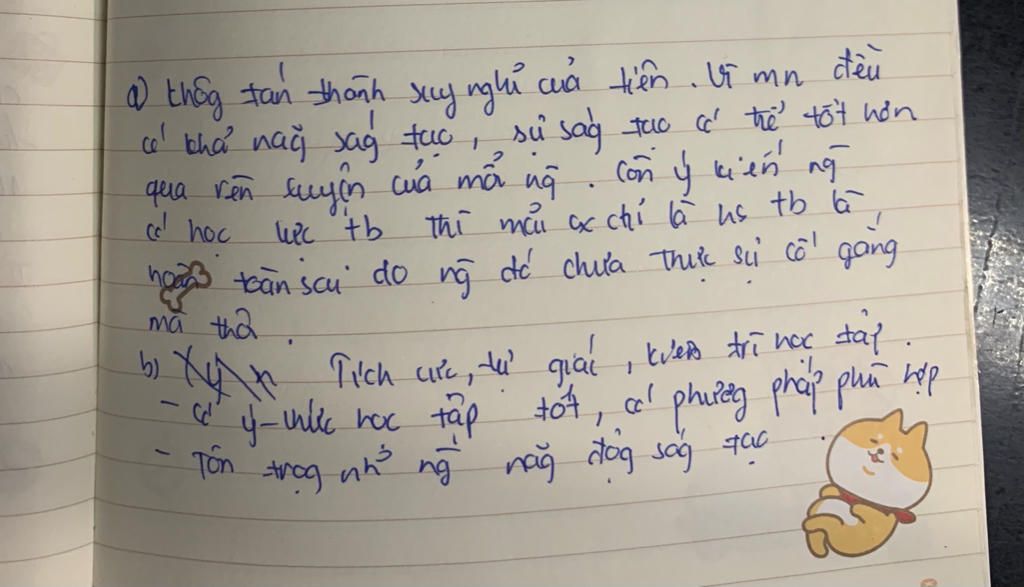 a) khôg tán thành suy nghỉ cuả tiên. Vì mn đều
có khả nağ ság tạc, sự ság tạc có thể tốt hơn
qua rèn luyện của mỗi ng̃. Còn ý kiến ng̃
có học lực tb thì mãi cx chỉ là hs tb là
hoàn toàn sai do ng̃ đó chưa thực sự cố gắng
mà thôi.
b) Tích cực, tự giác, kiên trì học tập.
- có ý-thức học tập tốt, có phươg pháp phù hợp
- Tôn trọg nh~̉ ng̃ năg độg ság tạc